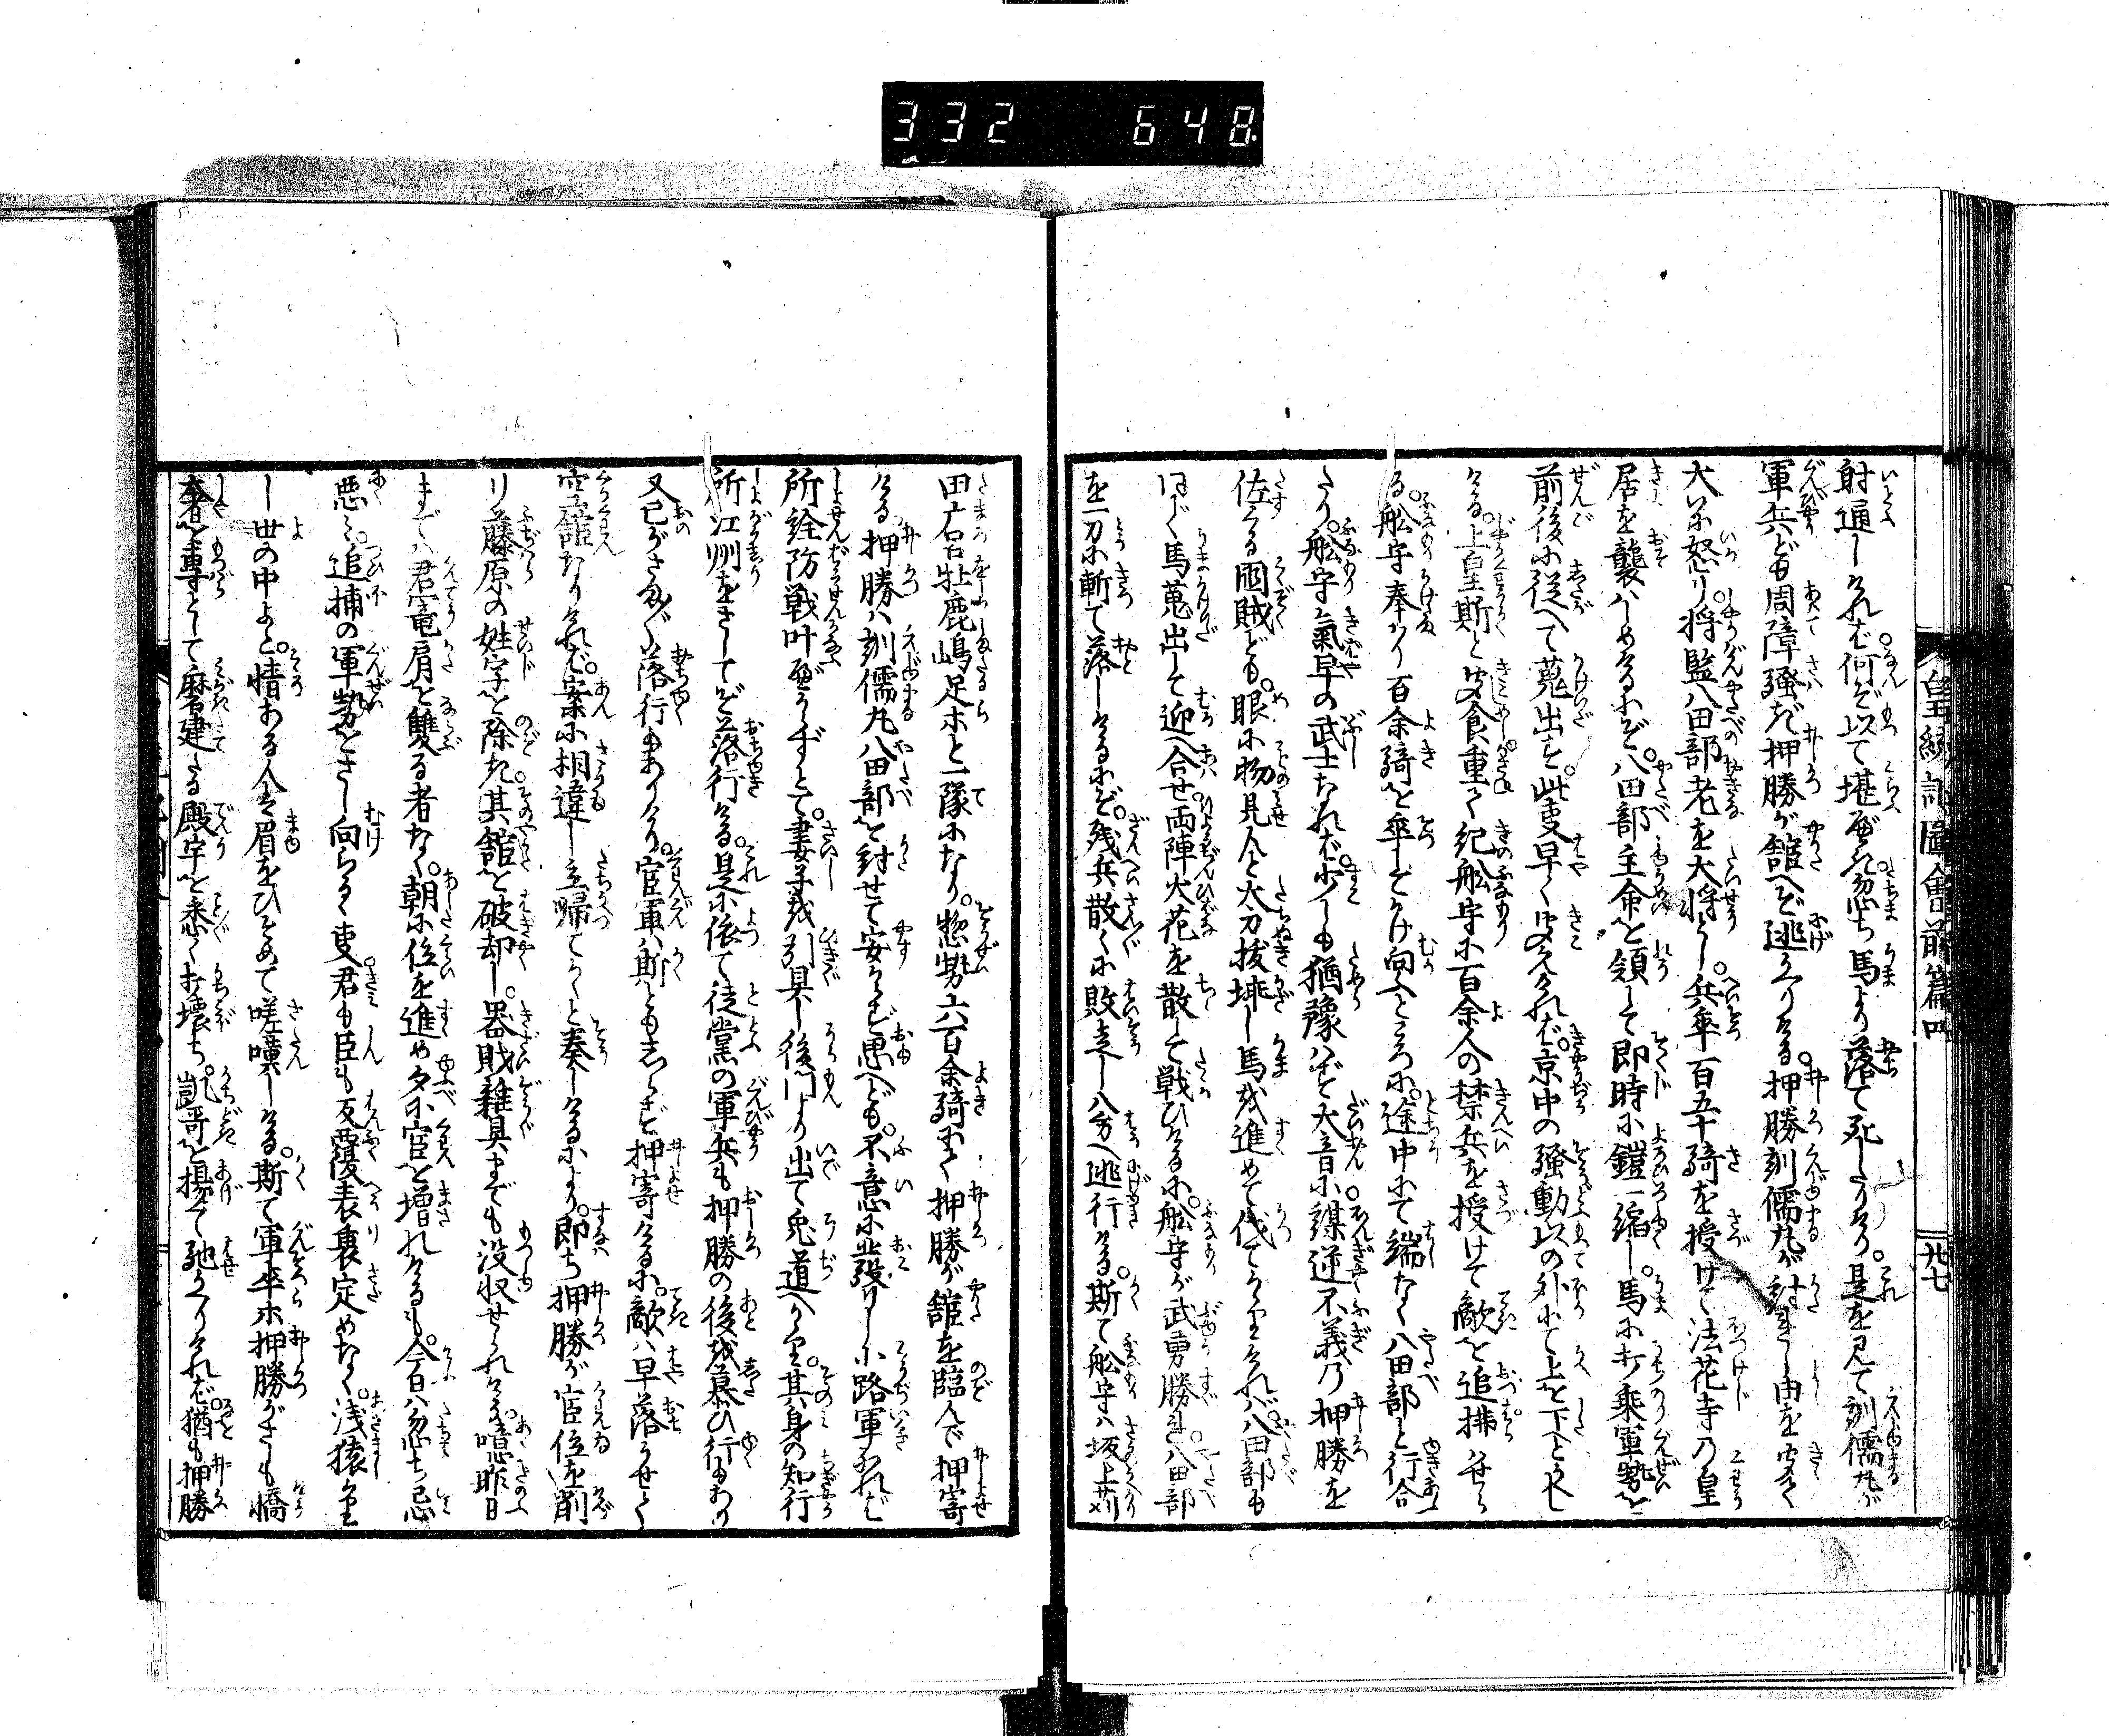 332 648
皇統記圖會前篇四
廿七
射通しければ何ぞ以て堪べき忽ち馬より落て死したりけり是を見て訓儒丸が
軍兵ども周障騒ぎ押勝が舘へぞ逃かへりける押勝訓儒丸が討れし由を聞て
大に怒り将監八田部老を大将とし兵卒百五十騎を授けて法花寺の皇
居を襲はしめけるにぞ八田部主命を領して即時に鎧一縮し馬に打乗軍勢を
前後に従へて蒐出す此叓早く聞えければ京中の騒動以の外にて上を下へとかへし
ける上皇斯と聞食重て紀舩守に百余人の禁兵を授けて敵を追拂はせら
る舩守奉り百余騎を率しかけ向ふところに途中にて端なく八田部と行合
たり舩守氣早の武士なれば少しも猶豫はず大音に謀逆不義の押勝を
佐くる國賊ども眼に物見んと太刀抜挿し馬を進めて伐てかゝれば八田部も
同じく馬蒐出して迎へ合せ両陣火花を散して戦ひけるに舩守が武勇勝れ八田部
を一刀に斬て落しけるにぞ残兵散々に敗走し八方へ逃行ける斯て舩守は坂上苅
田丸牡鹿嶋足ホと一隊になり惣勢六百余騎にて押勝が舘を臨んで押寄
ける押勝は訓儒丸八田部を討せて安からず思へども不意に発りし小路軍なれば
所詮防戦叶べからずとて妻子を引具し後門より出て兎道へかゝり其身の知行
所江州をさしてぞ落行ける是に依て徒黨の軍兵も押勝の後を慕ひ行もあり
又己がさま〴〵落行もありけり官軍は斯とも志らず押寄けるに敵は早落うせて
空舘なりければ案に相違し立歸てかくと奏しけるにより即ち押勝が官位を削
り藤原の姓字を除き其舘を破却し器財雜具までも没収せられける噫昨日
までは君寵肩を雙る者なく朝に位を進め夕に官を増れけるも今日は忽ち忌
悪み追捕の軍勢をさし向らるゝ叓君も臣も反覆表裏定めなく浅猿かりき
し世の中よと情ある人は眉をひそめて嗟嘆しける斯て軍卒ホ押勝がさしも驕
奢を專として磨建たる殿宇を悉くお壊ち凱哥を揚て馳かへりければ猶も押勝